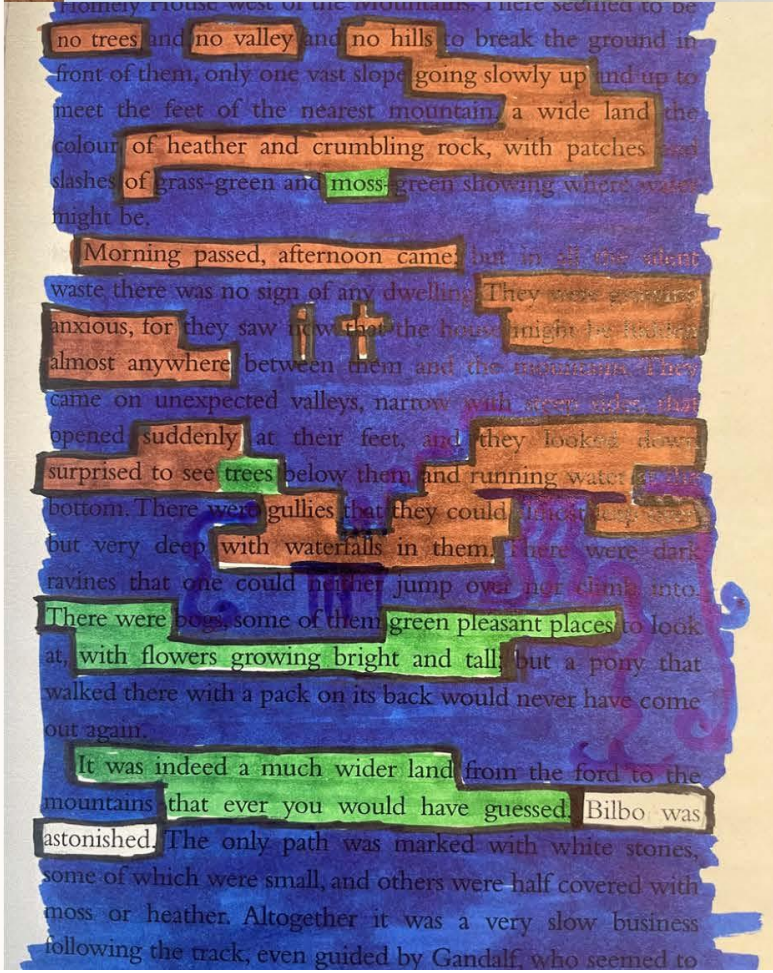 Homely House west of the Mountains. There seemed to be
no trees and no valley and no hills to break the ground in
front of them, only one vast slope going slowly up and up to
meet the feet of the nearest mountain, a wide land the
colour of heather and crumbling rock, with patches and
slashes of grass-green and moss-green showing where water
might be.
Morning passed, afternoon came; but in all the silent
waste there was no sign of any dwelling. They were growing
anxious, for they saw now that the house might be hidden
almost anywhere between them and the mountains. They
came on unexpected valleys, narrow with steep sides, that
opened suddenly at their feet, and they looked down
surprised to see trees below them and running water at the
bottom. There were gullies that they could
but very deep with waterfalls in them. There were dark
ravines that one could neither jump over nor climb into.
There were bogs, some of them green pleasant places to look
at, with flowers growing bright and tall; but a pony that
walked there with a pack on its back would never have come
out again.
It was indeed a much wider land from the ford to the
mountains that ever you would have guessed. Bilbo was
astonished. The only path was marked with white stones,
some of which were small, and others were half covered with
moss or heather. Altogether it was a very slow business
following the track, even guided by Gandalf, who seemed to